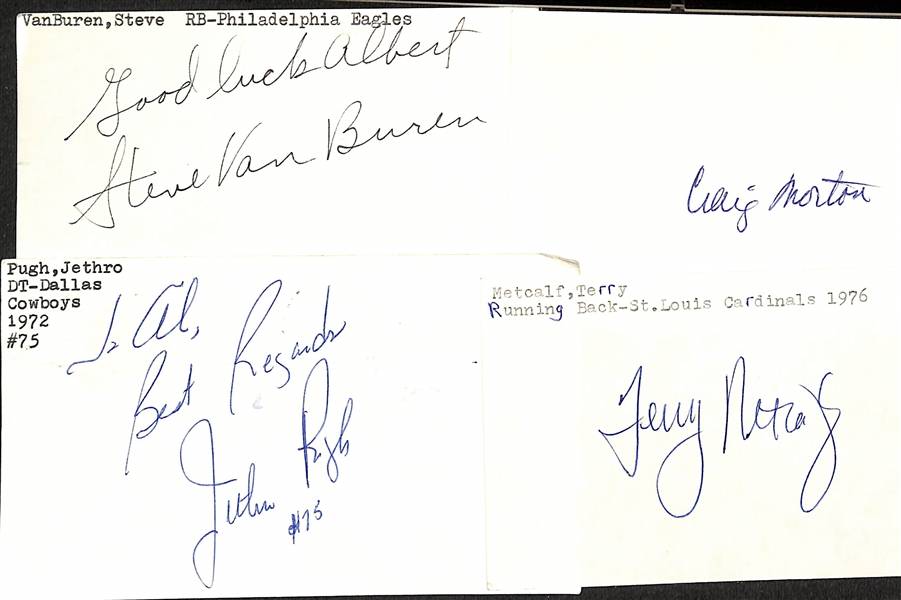 VanBuren,Steve RB-Philadelphia Eagles
Good luck Albert
Steve Van Buren
Craig Morton
Pugh,Jethro
DT-Dallas
Cowboys
1972
#75
To Al,
Best Regards
Jethro Pugh
#75
Metcalf,Terry
Running Back-St.Louis Cardinals 1976
Terry Metcalf